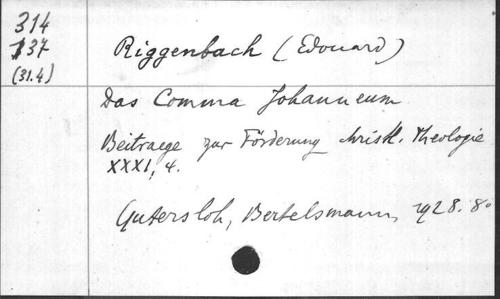 314
137
(31.4)
Riggenbach (Edouard)
Das Comma Johanneum
Beitraege zur Förderung christl. Theologie
XXXI, 4.
Gutersloh, Bertelsmann, 1928. 8°